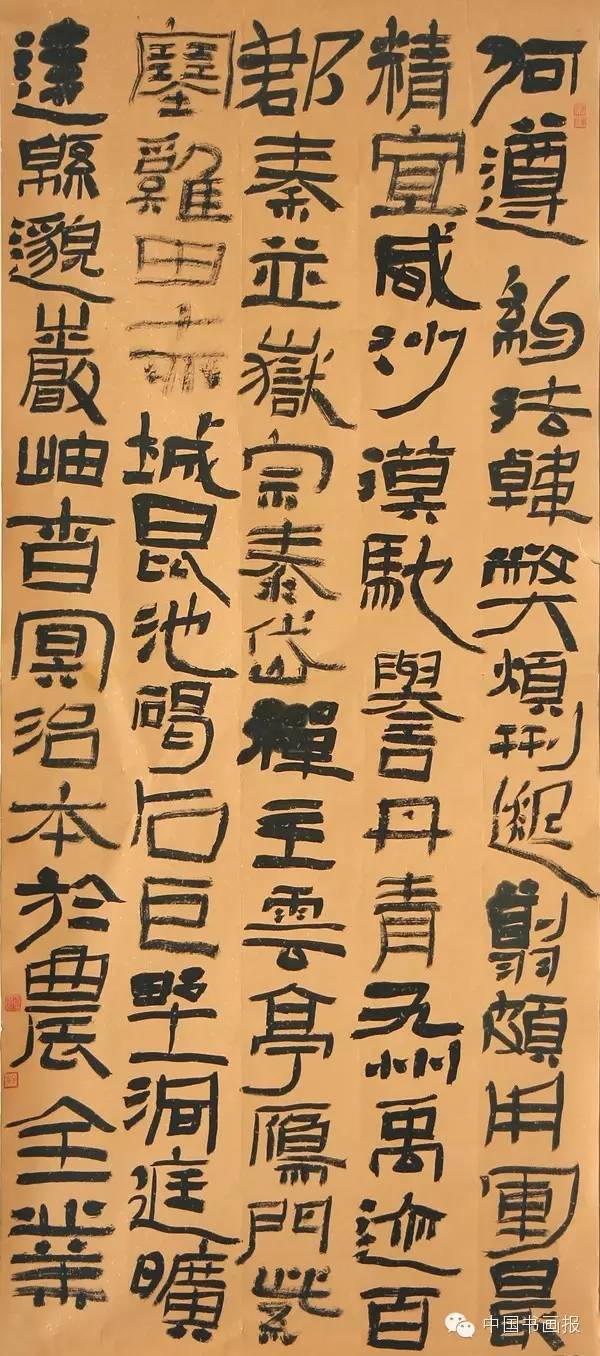 何遵約法韓弊煩刑起翦頗用軍最
精宣威沙漠馳譽丹青九州禹迹百
郡秦並嶽宗泰岱禪主雲亭鴈門紫
塞雞田赤城昆池碣石巨野洞庭曠
遠緜邈巖岫杳冥治本於農全業
中国书画报